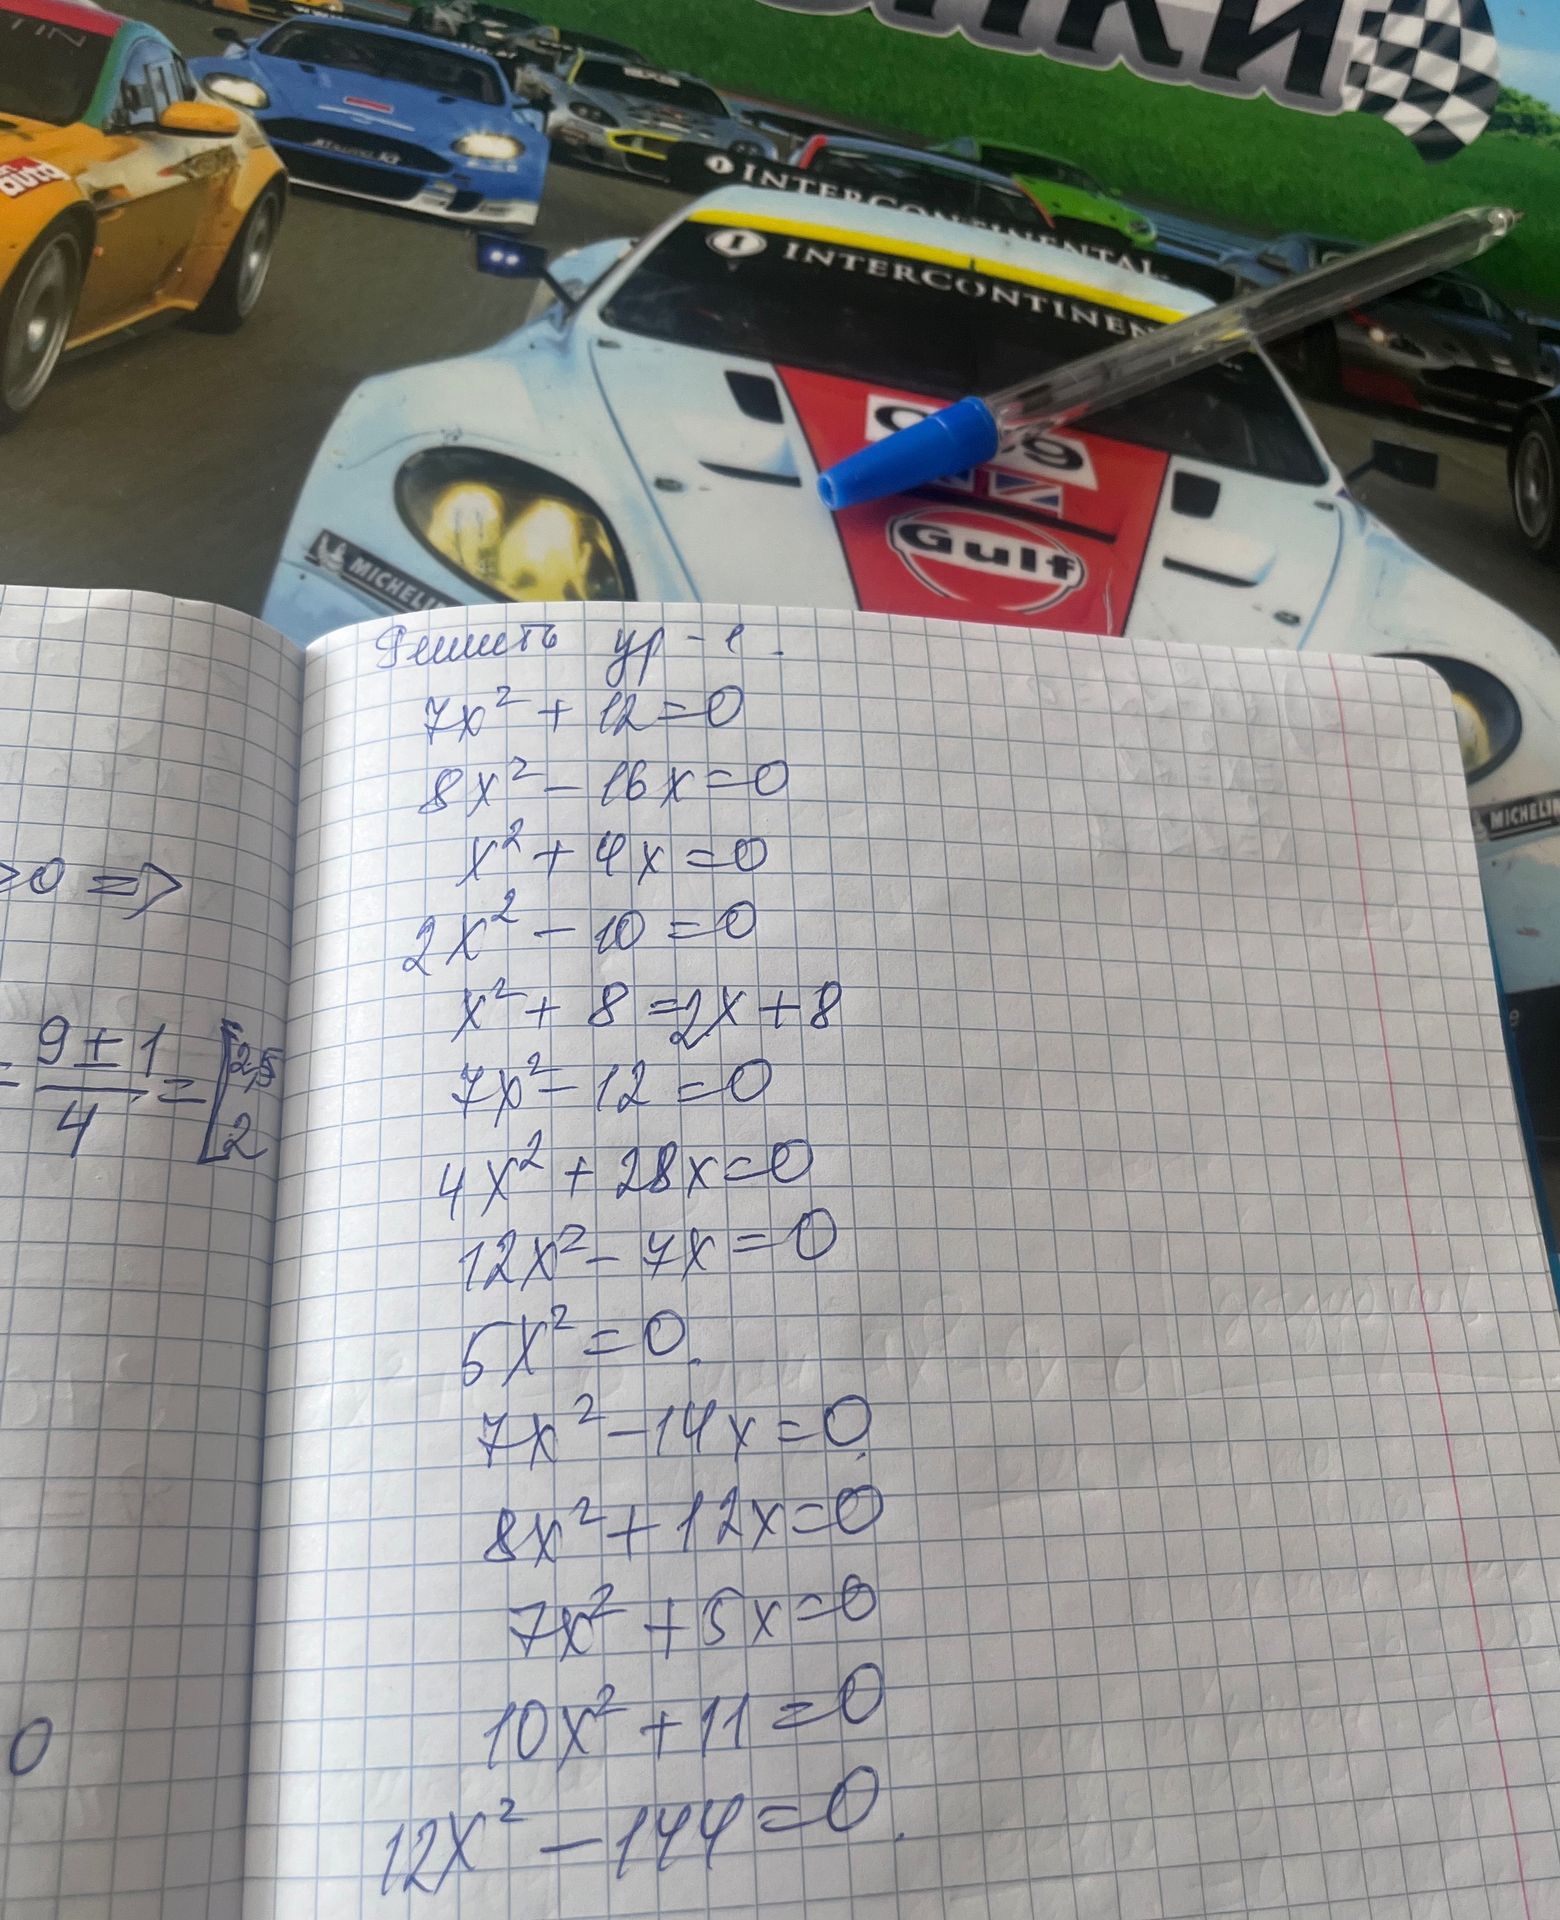 INTERCONTINENTAL
INTERCONTINEN
auto
Gulf
MICHELIN
MICHELIN
Решить ур-е.
7x² + 12 = 0
8x² - 16x = 0
x² + 4x = 0
2x² - 10 = 0
x² + 8 = 2x + 8
7x² - 12 = 0
4x² + 28x = 0
12x² - 7x = 0
5x² = 0.
7x² - 14x = 0
8x² + 12x = 0
7x² + 5x = 0
10x² + 11 = 0
12x² - 144 = 0.
>0 =>
= 9 ± 1 / 4 = [2,5
2
0